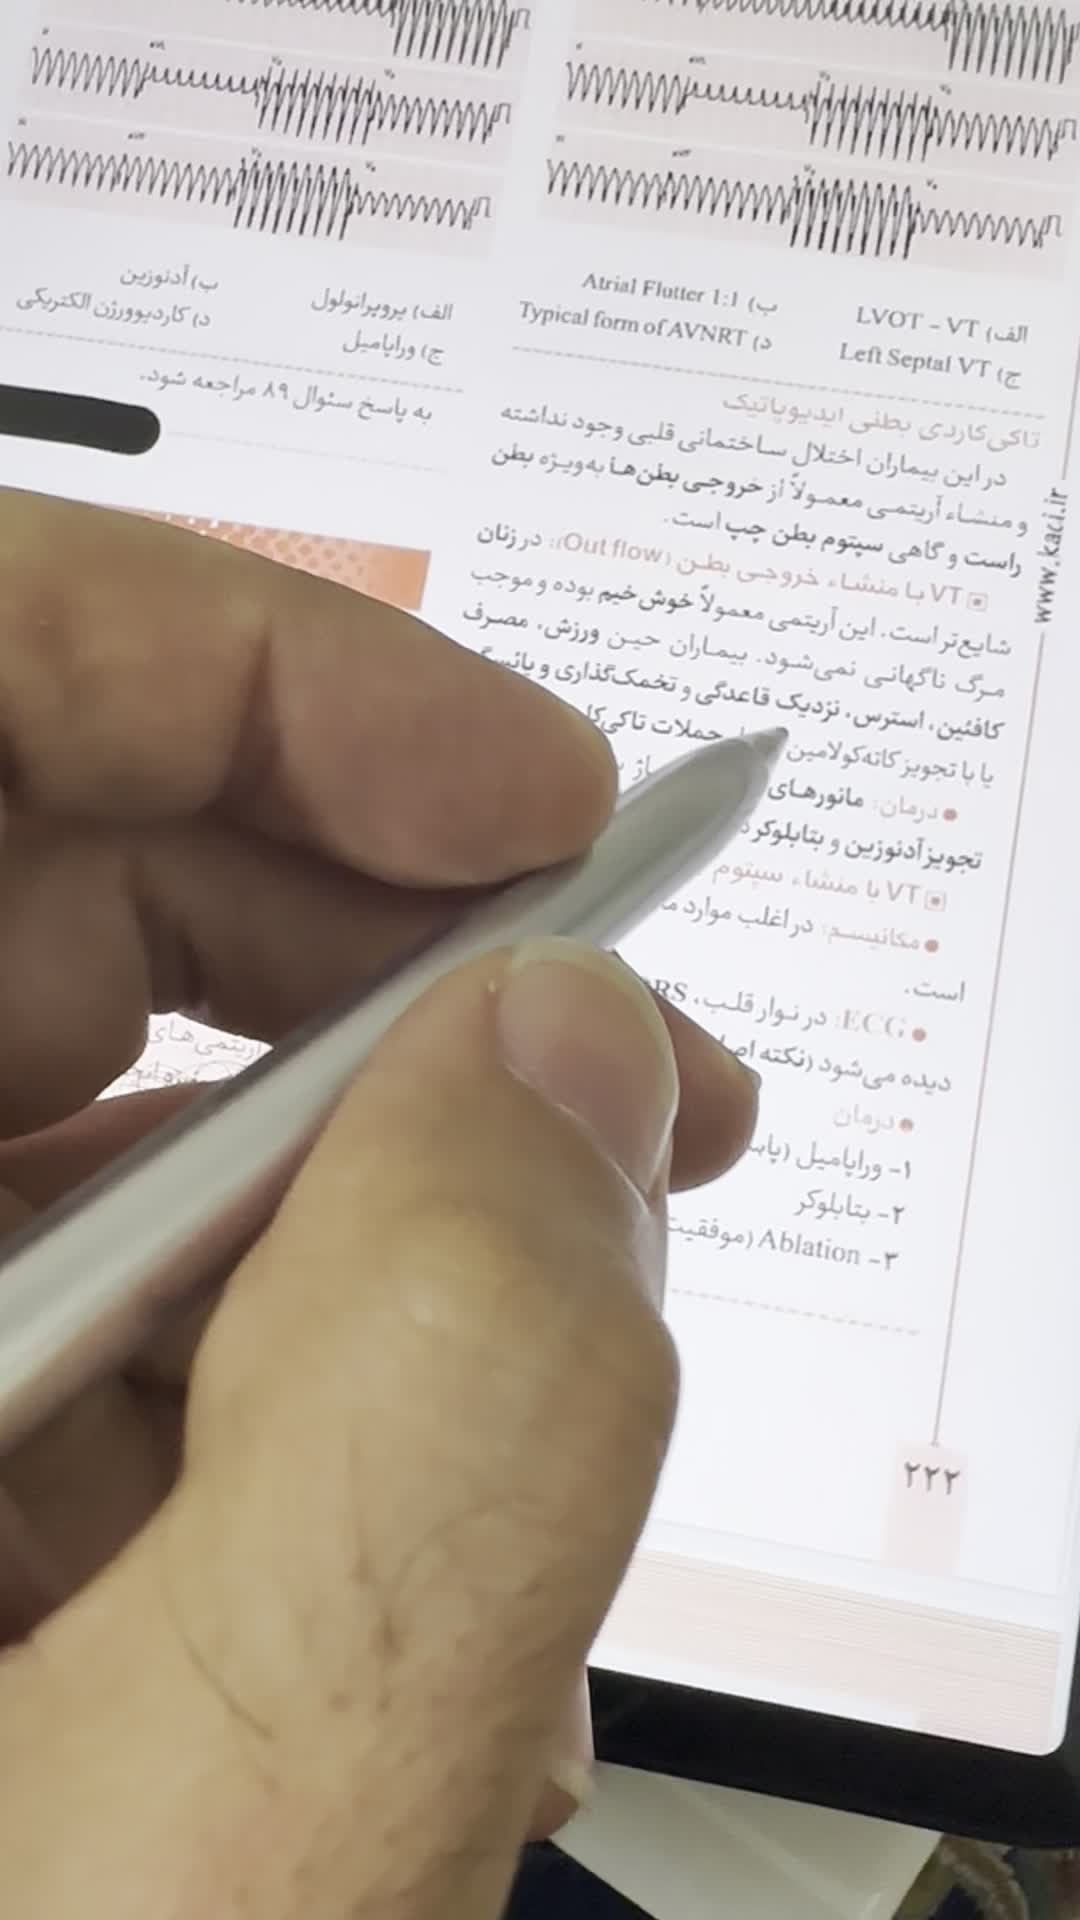 الف) LVOT - VT
ب) Atrial Flutter 1:1
ج) Left Septal VT
د) Typical form of AVNRT
تاکی‌کاردی بطنی ایدیوپاتیک
در این بیماران اختلال ساختمانی قلبی وجود نداشته
و منشاء آریتمی معمولاً از خروجی بطن‌ها به‌ویژه بطن
راست و گاهی سپتوم بطن چپ است.
VT با منشاء خروجی بطن (Out flow): در زنان
شایع‌تر است. این آریتمی معمولاً خوش‌خیم بوده و موجب
مرگ ناگهانی نمی‌شود. بیماران حین ورزش، مصرف
کافئین، استرس، نزدیک قاعدگی و تخمک‌گذاری و
یا با تجویز کاته‌کولامین حملات
درمان: مانورهای
تجویز آدنوزین و بتابلوکر
VT با منشاء سپتوم
مکانیسم: در اغلب موارد
است.
ECG: در نوار قلب،
دیده می‌شود (نکته
درمان
۱- وراپامیل
۲- بتابلوکر
۳- Ablation (موفقیت
۲۲۲
www.kaci.ir
الف) پروپرانولول
ب) آدنوزین
ج) وراپامیل
د) کاردیوورژن الکتریکی
به پاسخ سئوال ۸۹ مراجعه شود.
آریتمی‌های